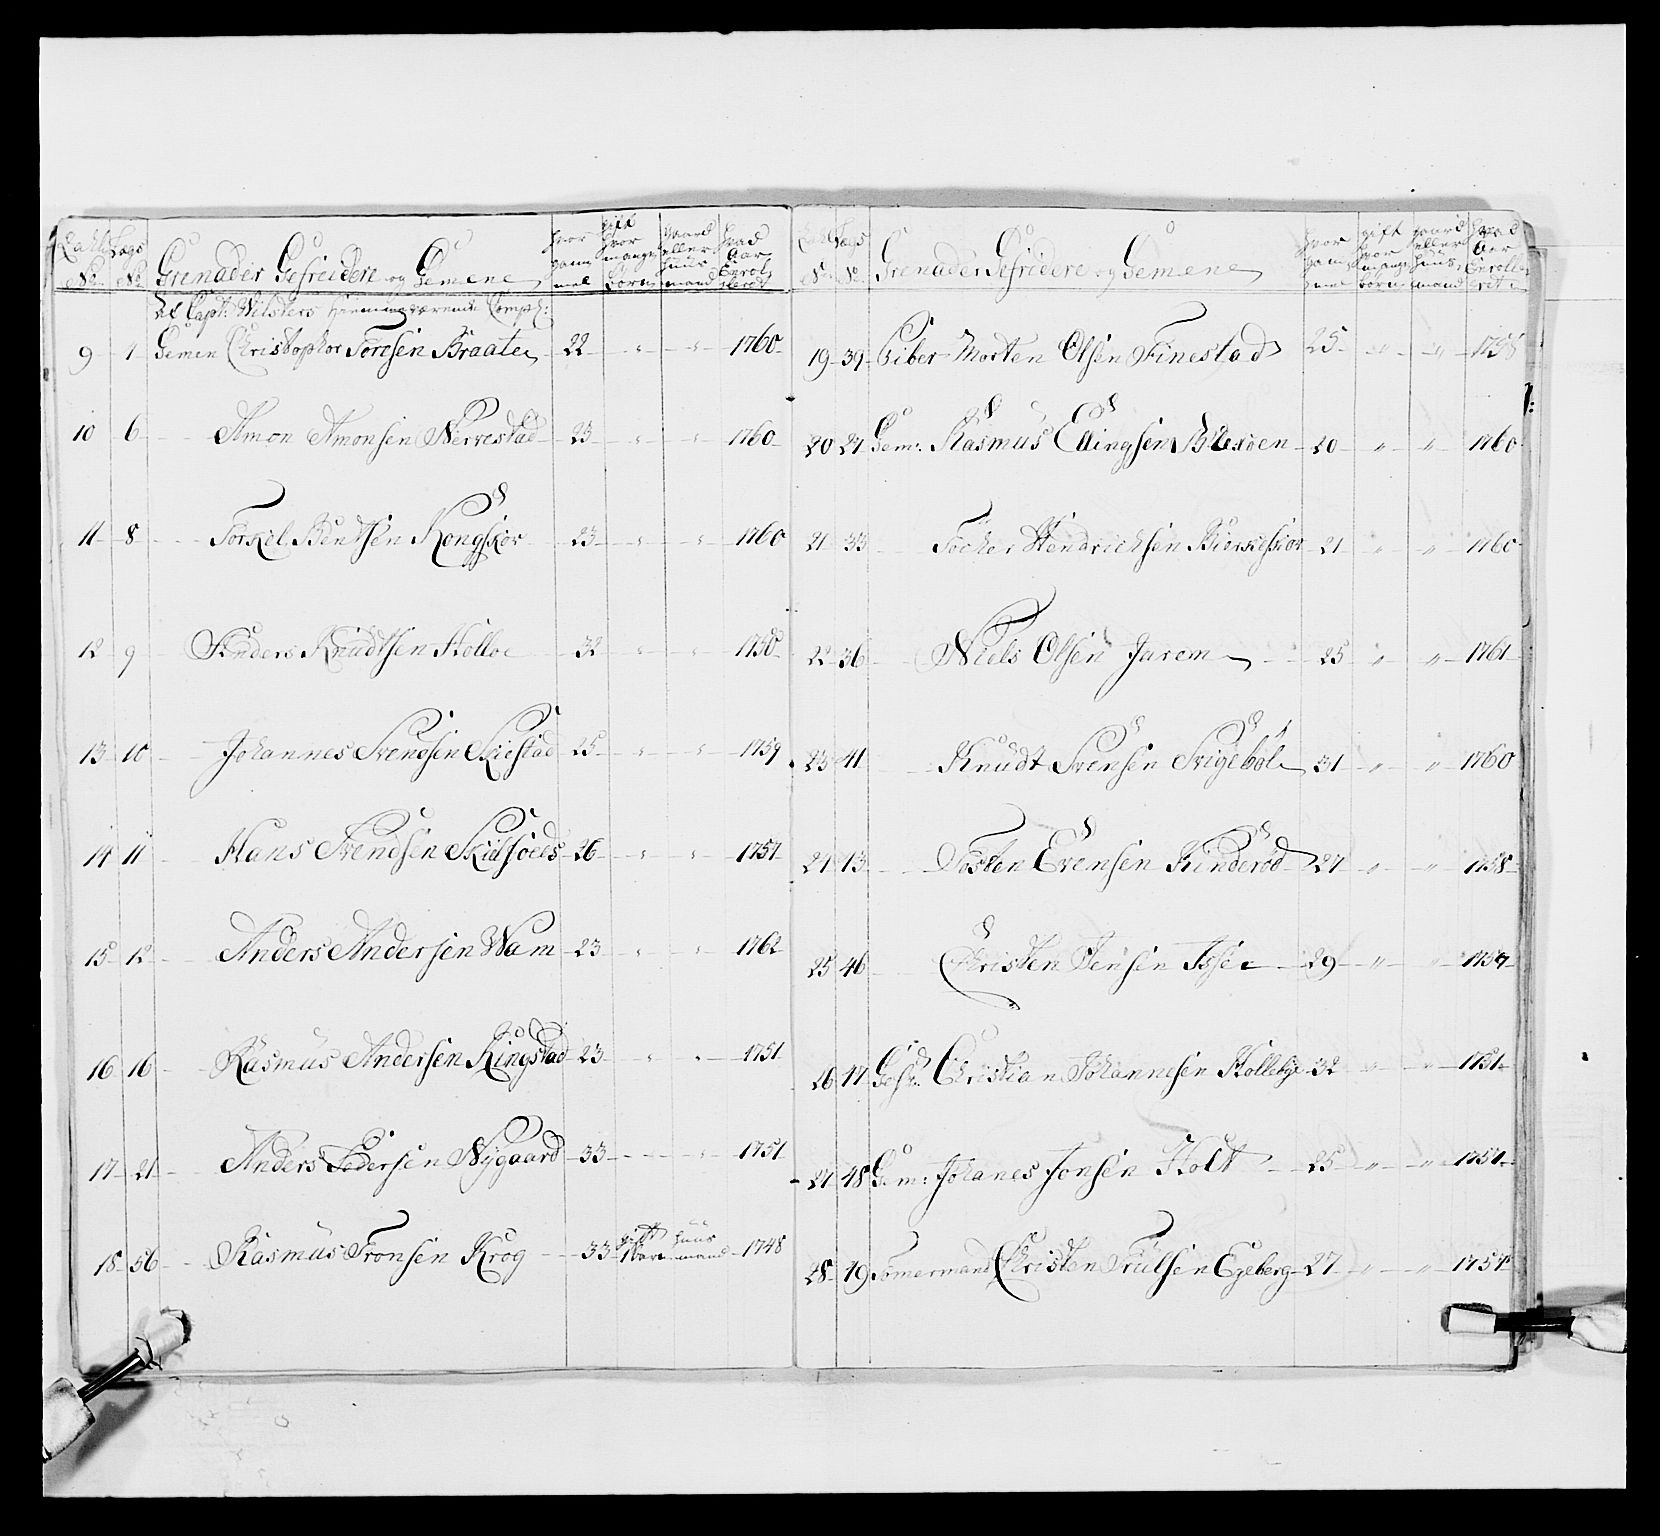 No No Grenader Gefreidere og Gemene hvor gamel gift hvor mange børn gaard eller huus mand hvad Aar Enrolleret
af Capt: Wilsters Compl:
9 1 Gemen Christophor Toresen Braaten 22 " " 1760
10 6 Amon Amonsen Nerrestad 23 " " 1760
11 8 Torkel Bentsen Kongskov 23 " " 1760
12 9 Anders Knudtsen 32 " " 1750
13 10 Johannes Svendsen Skiestad 25 " " 1759
14 11 Hans Svendsen 26 " " 1757
15 12 Anders Andersen Wam 23 " " 1762
16 16 Rasmus Andersen Ringstad 23 " " 1751
17 21 Anders Pedersen Nygaard 33 " 1751
18 56 Rasmus Tronsen Krog 33 gift 1 barn huusmand 1748
No No Grenader Gefreidere og Gemene hvor gamel gift hvor mange børn gaard eller huusmand hvad Aar Enrolleret
19 39 Piber Morten Olsen Finestad 25 " "
20 27 Gem: Rasmus Ellingsen 20 " " 1760
21 33 Hendrichsen 21 " " 1760
22 36 Niels Olsen Jarem 25 " " 1761
23 41 Knudt Svensen Svigebøl 31 " " 1760
24 43 Tosten Evensen Kinderød 27 " " 1758
25 46 Christen Jensen 29 " " 1757
26 47 Gefr: Christian Johannesen Hollebye 32 " " 1751
27 48 Gem: Johanes Jonsen Holt 25 " " 1757
28 49 Tømermand Christen Trulsen Egeberg 27 " " 1757